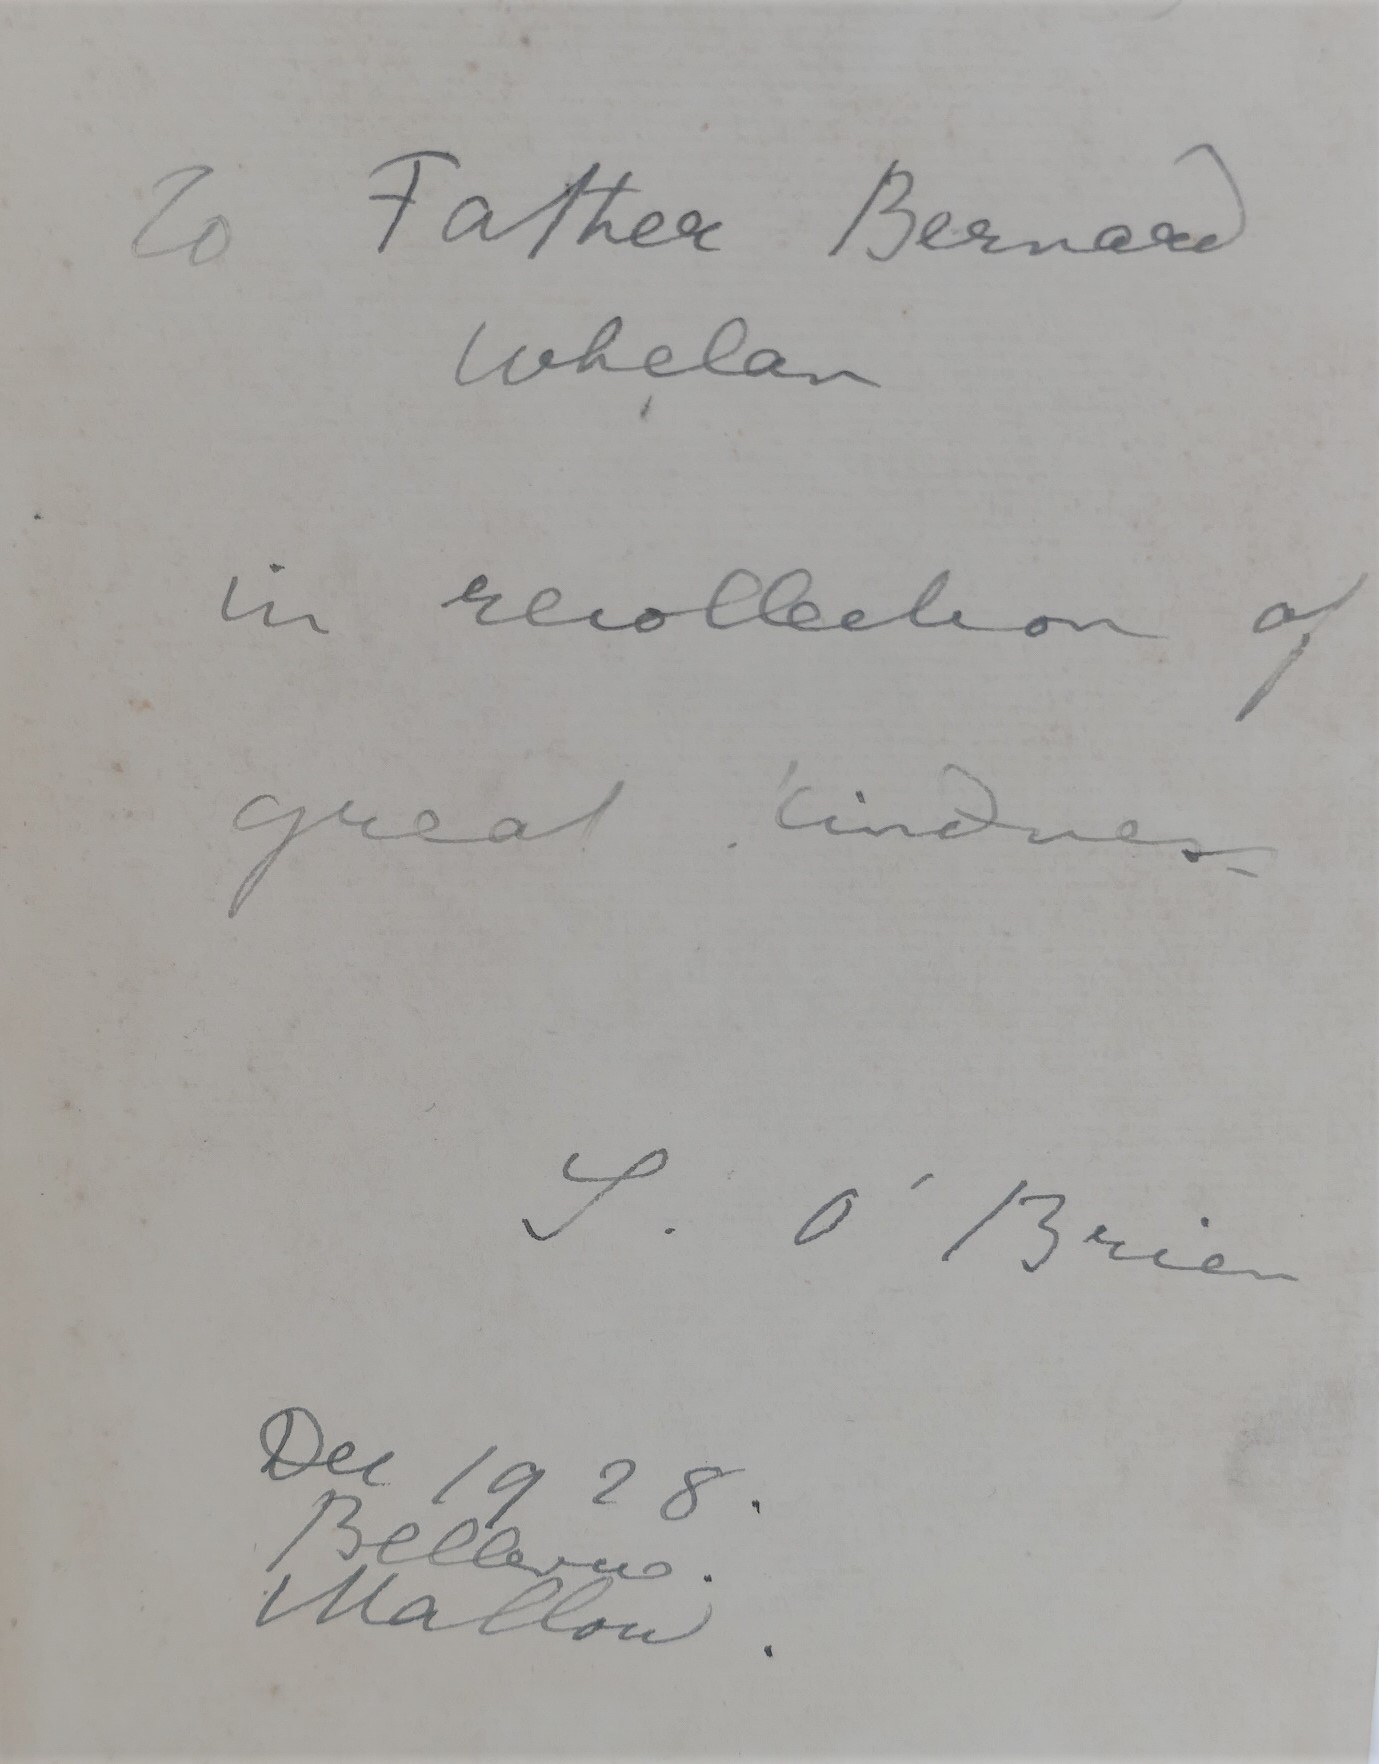 To Father Bernard
Whelan
in recollection of
great kindness
S. O'Brien
Dec 1928.
Bellevue.
Mallow.